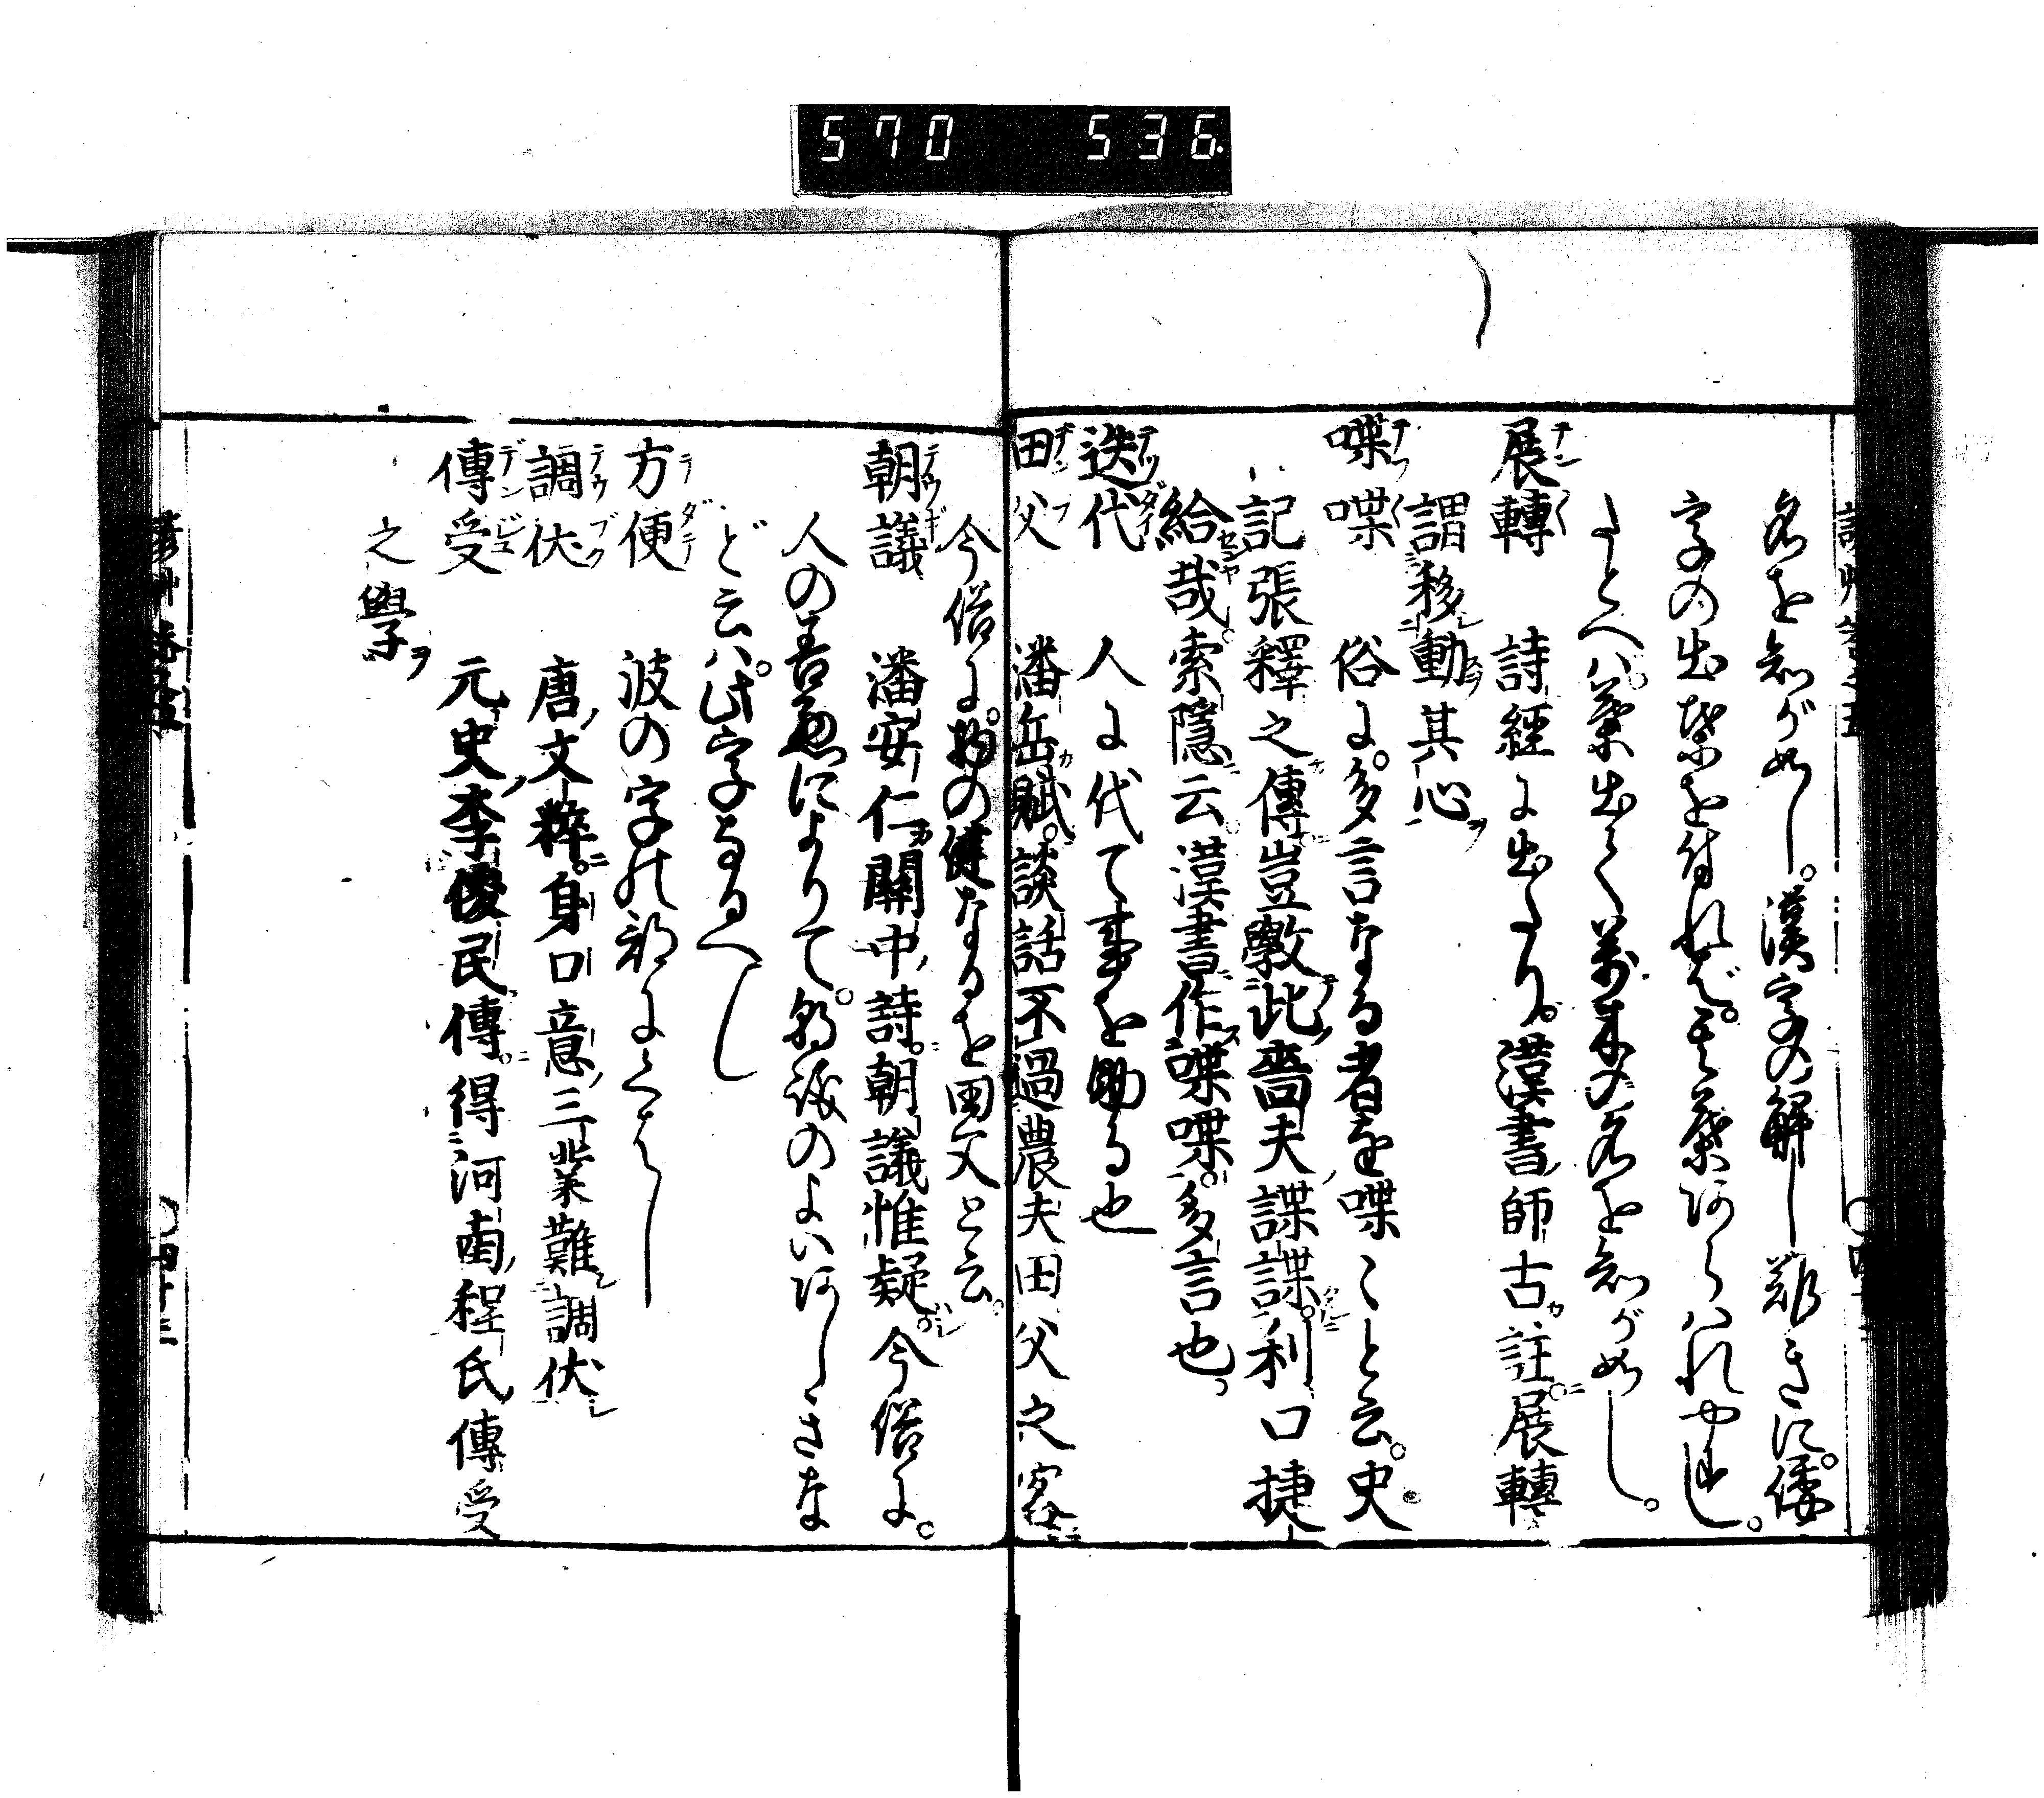 570 536.
名を知がめし。漢字の解し難きに。倭
字の出葉を付れば。其葉あらハれやすし。
たとへバ。葉出てく菜の名を知がめし。
展轉 詩經に出たり。漢書師古註。展轉
謂移動其心
喋喋 俗に。多言なる者を喋〻と云。史
記張釋之傳豈斅此嗇夫諜諜。利口捷
給哉。索隱云漢書作喋喋。多言也
迭代 人に代て事を助る也
田父 潘岳賦。談話不過農夫田父之客
今俗に。物の健なるを田父と云。
朝議 潘安仁關中詩。朝議惟疑。今俗に。
人の善惡によりて。朝議のよいあしきな
ど云ハ。此字なるへし
方便 波の字の部にくはし
調伏 唐文粹。身口意三業難調伏
傳受 元史李俊民傳。得河南程氏傳受
之學